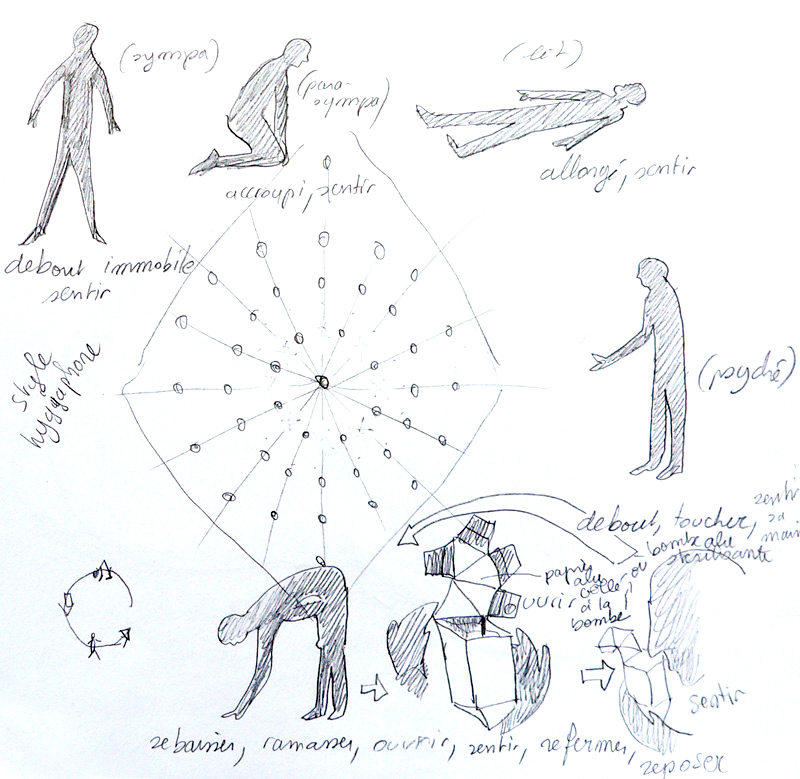 (sympa)
(para-
sympa)
(lit)
accroupi, sentir
allongé, sentir
debout immobile
sentir
style
hygiaphone
(psyché)
debout, toucher, sentir
sa
main
bombe alu
ou
papier
alu
collé
à la
bombe
ouvrir
sentir
se baisser, ramasser, ouvrir, sentir, refermer,
reposer